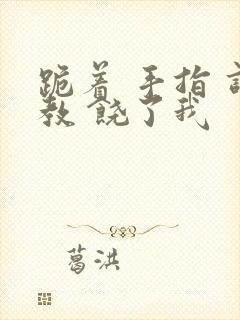 跪着 手指 
教 饶了我
葛洪